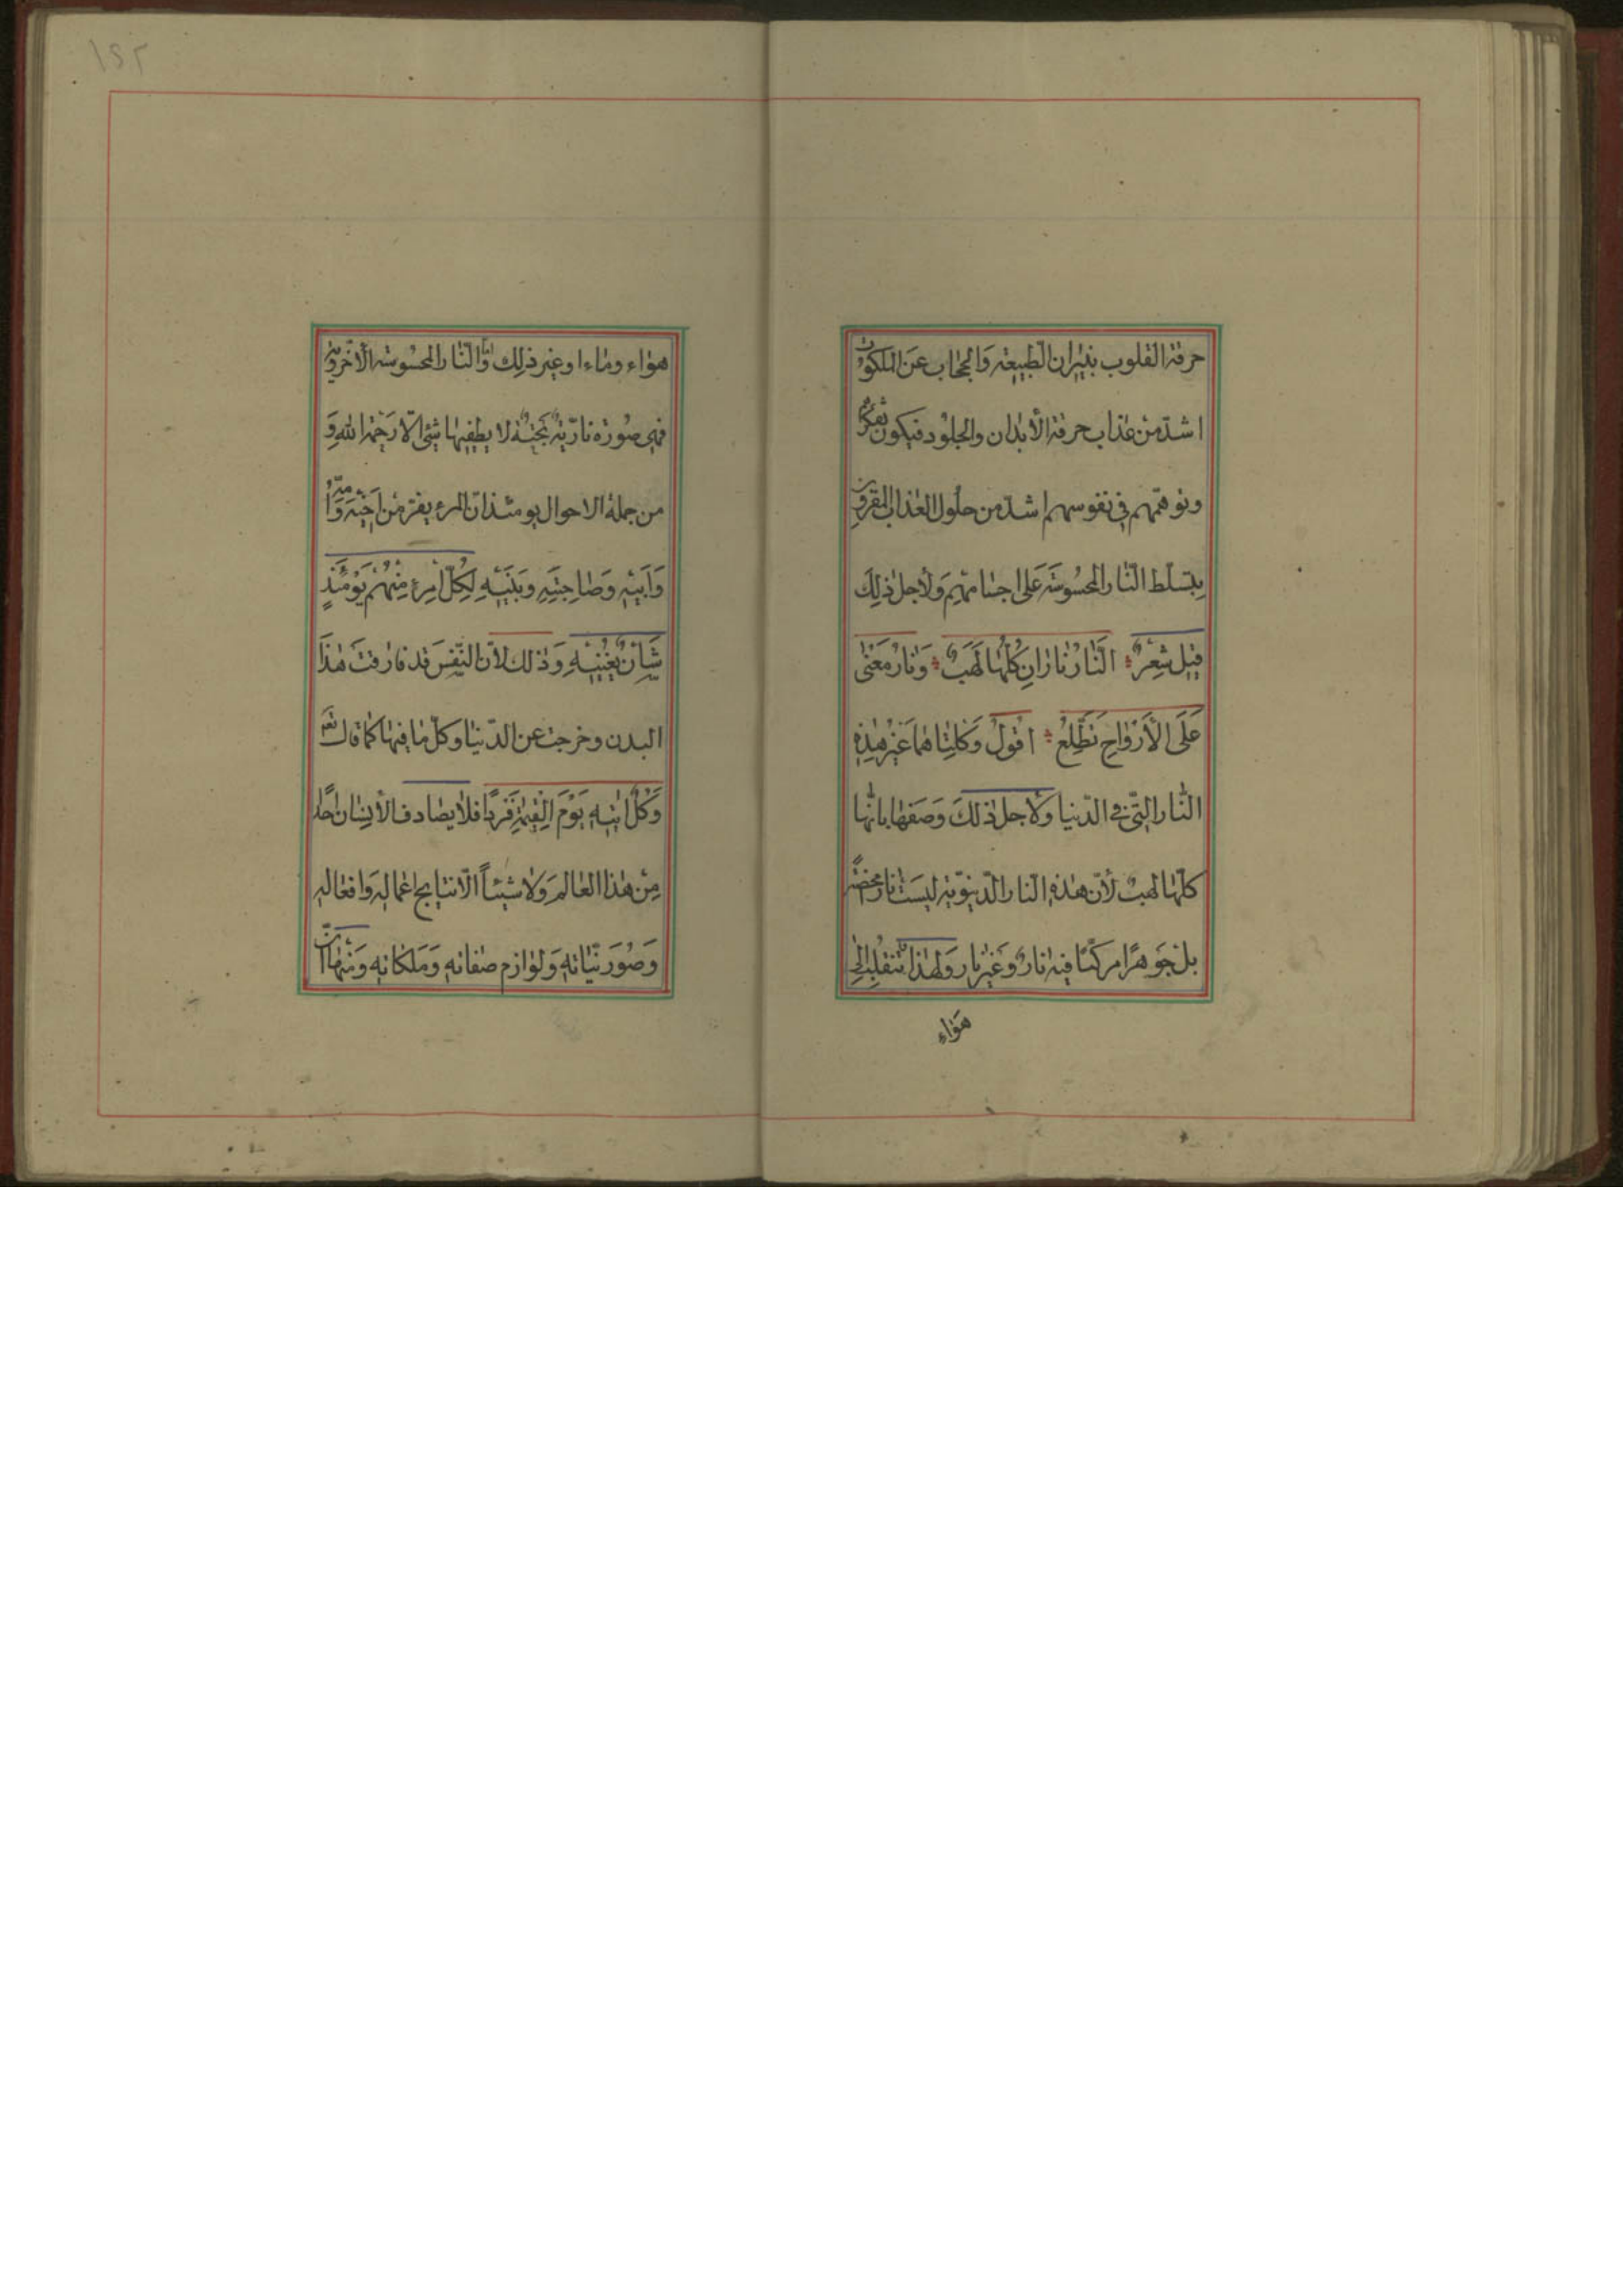 حرقة القلوب بنيران الطبيعة والحجاب عن الملكوت
اشدّ من عذاب حرقة الأبدان والجلود فيكون تفكّر
وتوهّمهم في نفوسهم اشدّ من حلول العذاب المقرون
بتسلّط النّار المحسوسة على اجسامهم ولأجل ذلك
قيل شعرٌ النّارُ ناران كُلّها لَهَبٌ وَنارُ مَعنىٰ
عَلَى الأَرْواحِ تَطَّلِعُ اقول وَكلتاهما غَيْر هٰذِهِ
النّار التي في الدّنيا ولأجل ذٰلك وَصَفها بانّها
كلّها لهبٌ لأنّ هذهِ النار الدّنيويّة ليسَت نارٌ محضة
بل جَوهرًا مركّبًا فيه نارٌ وغَيْر نار ولهٰذا تنقلب الى
هَوٰاء
١٥٢
هوٰاء ومٰاءا وغير ذٰلك وامّا النّار المحسُوسة الأخرويّة
فهى صُورة ناريّةٌ لا يطفيها شئ الّا رَحْمة الله وَ
من جملة الاحوال يومئذ انّ المرء يفرّ من اَخيه وَاُمّهِ
وَاَبيهِ وَصاحِبَتِهِ وبَنيهِ لِكُلّ امرِءٍ مِنْهُمْ يَوْمَئِذٍ
شَأنٌ يُغْنيهِ وَذٰلك لأنّ النّفسَ قد فارقتَ هٰذَا
البدن وخرجت عن الدّنيا وكلّ ما فيها كما قال تعٰ
وَكُلّ اٰتيهِ يَوْمَ القِيٰمَةِ فَردًا فلا يصادف الأنسٰان احدًا
مِن هٰذا العٰالم ولا شيئاً الّا نتايج اعمالهِ وَافعالِهِ
وَصُوَر نيّاتهِ وَلوازم صفاته وَمَلكاته وَمنها انّ